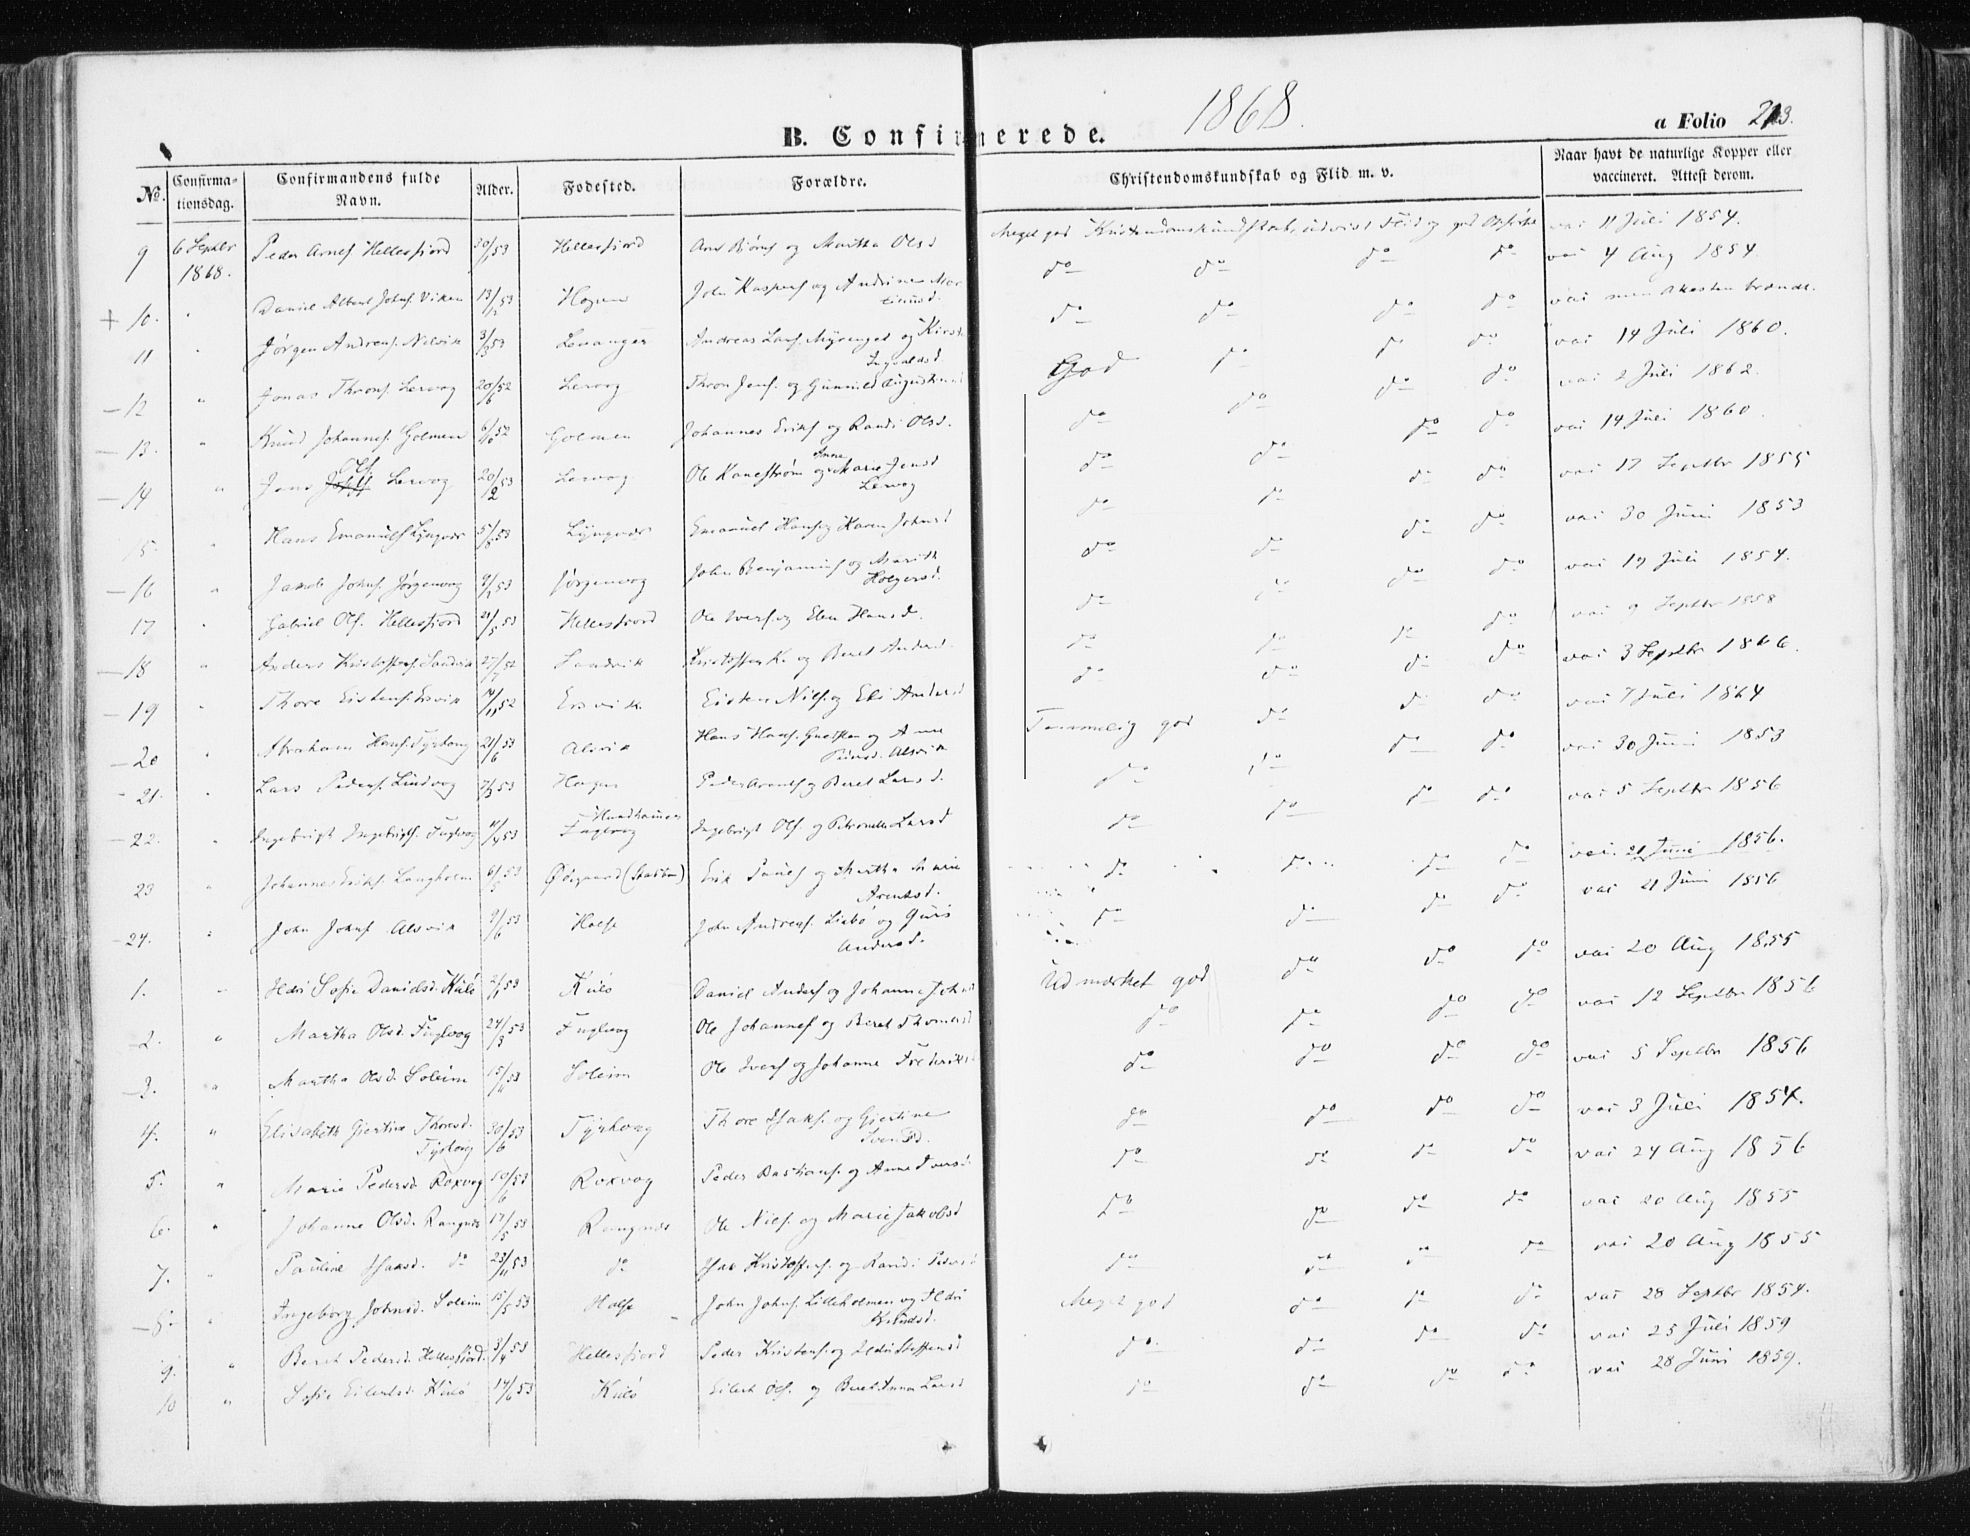 1868.
B. Confirmerede.
a Folio 213.
No. Confirma-tionsdag. Confirmandens fulde Navn. Alder. Fødested. Forældre. Christendomskundskab og Flid m. v. Naar havt de naturlige Kopper eller vaccineret. Attest derom.
9 6 Septbr 1868. Peder Arnes. Hellesfjord 30/1 53 Hellesfjord Arn Bjørns. og Martha Olsd Meget god Kristendomskundskab, udvist Flid og god Opførsel vac 11 Juli 1854.
+ 10. " Daniel Albert Johns. Viken 13/12 53 Hagen John Kaspers. og Andrine Martinusd. do do do do vac 4 Aug 1854
11 " Jørgen Andreas. Nelvik 3/3 53 Levanger Andreas Lars. Myrenget og Kirst. Ingvaldsd do do do do vac men Attesten brændt.
- 12 " Jonas Throns. Lervog 20/6 52 Lervog Thron Jens. og Gunnild Augustinusd God do do do vac 14 Juli 1860.
- 13. " Knud Johannes. Golmen 6/10 52 Golmen Johannes Eriks. og Randi Olsd. do do do do vac 2 Juli 1862.
- 14 " Jens Ols. Lervog 20/2 53 Lervog Ole Kanestrøm og Anne Marie Jensd Lervog do do do do vac 14 Juli 1860.
15. " Hans Emanuels. Lyngvær 5/8 53 Lyngvær Emanuel Hans. og Karen Johnsd do do do do vac 17 Septbr 1855
- 16 " Jakob Johns. Jørgenvog 9/2 53 Jørgenvog John Benjamins. og Marith Holgersd. do do do do vac 30 Juni 1853
17 " Gabriel Ols. Hellesfjord 21/5 53 Hellesfjord Ole Ivers. og Elen Hansd. do do do do vac 19 Juli 1854.
- 18 " Anders Kristoffers. Sandvik 27/7 52 Sandvik Kristoffer K. og Beret Andersd. do do do do vac 9 Septbr 1858
- 19 " Thore Eistens. Ersvik 14/11 52 Ersvik Eisten Nils. og Eli Andersd do do do do vac 3 Septbr 1866.
- 20 " Abraham Hans. Tyrhaug 21/6 53 Alsvik Hans Hans. og Anne Alsvik Temmelig god do do do vac 7 Juli 1864
- 21. " Lars Peders. Lindvog 7/3 53 Hagen Peder Arents. og Beret Larsd. do do do do vac 30 Juni 1853
- 22. " Ingebrigt Ingebrigts. Fuglvog 4/4 53 Hundhammer Fuglvog Ingebrigt Ols. og Petronelle Larsd do do do do vac 5 Septbr 1856
23 " Johannes Eriks. Langholm 6/5 53 Ødegaard Erik Pauls. og Martha Marie Arentsd. do do do do vac. 21 Juni 1856.
- 24. " John Johns. Alsvik 9/6 53 Halse John Andreas. Lisbø og Guri Andersd. do do do do vac 21 Juni 1856
1. " Ildri Sofie Danielsd. Kulø 2/1 53 Kulø Daniel Anders. og Johanne Johnsd Udmærket god do do do vac 20 Aug 1855
2. " Martha Olsd. Fuglvog 24/3 53 Fuglvog Ole Johannes. og Beret Thomasd do do do do vac 12 Septbr 1856
- 3. " Martha Olsd. Soleim 15/11 53 Soleim Ole Ivers. og Johanne Frederiksd do do do do vac 5 Septbr 1856
4. " Elisabeth Gjertine Thoresd. Tyrhaug 30/6 53 Tyrhaug Thore Isaks. og Gjertine Ivarsd. do do do do vac 3 Juli 1854.
5. " Marie Pedersd. Rokvog 10/6 53 Rokvog Peder Bastians. og Anne Iversd do do do do vac 24 Aug 1856
6. " Johanne Olsd. Rangnes 17/5 53 Rangnæs Ole Nils. og Marie Jakobsd do do do do vac 20 Aug 1855
7. " Pauline Isaksd. do 23/11 53 do Isak Kristoffers. og Randi Pedersd do do do do vac 20 Aug 1855
- 8. " Ingeborg Johnsd. Soleim 15/5 53 Halse John Johns. Lilleholmen og Ildri Knudsd. Meget god do do do vac 28 Septbr 1854.
9. " Beret Pedersd. Hellesfjord. 3/4 53 Hellesfjord Peder Kristens. og Ildri Steffensd do do do do vac 25 Juli 1859
10 " Sofie Eilertsd. Kulø 14/6 53 Kulø Eilert Ols. og Beret Anna Larsd do do do do vac 28 Juni 1859.